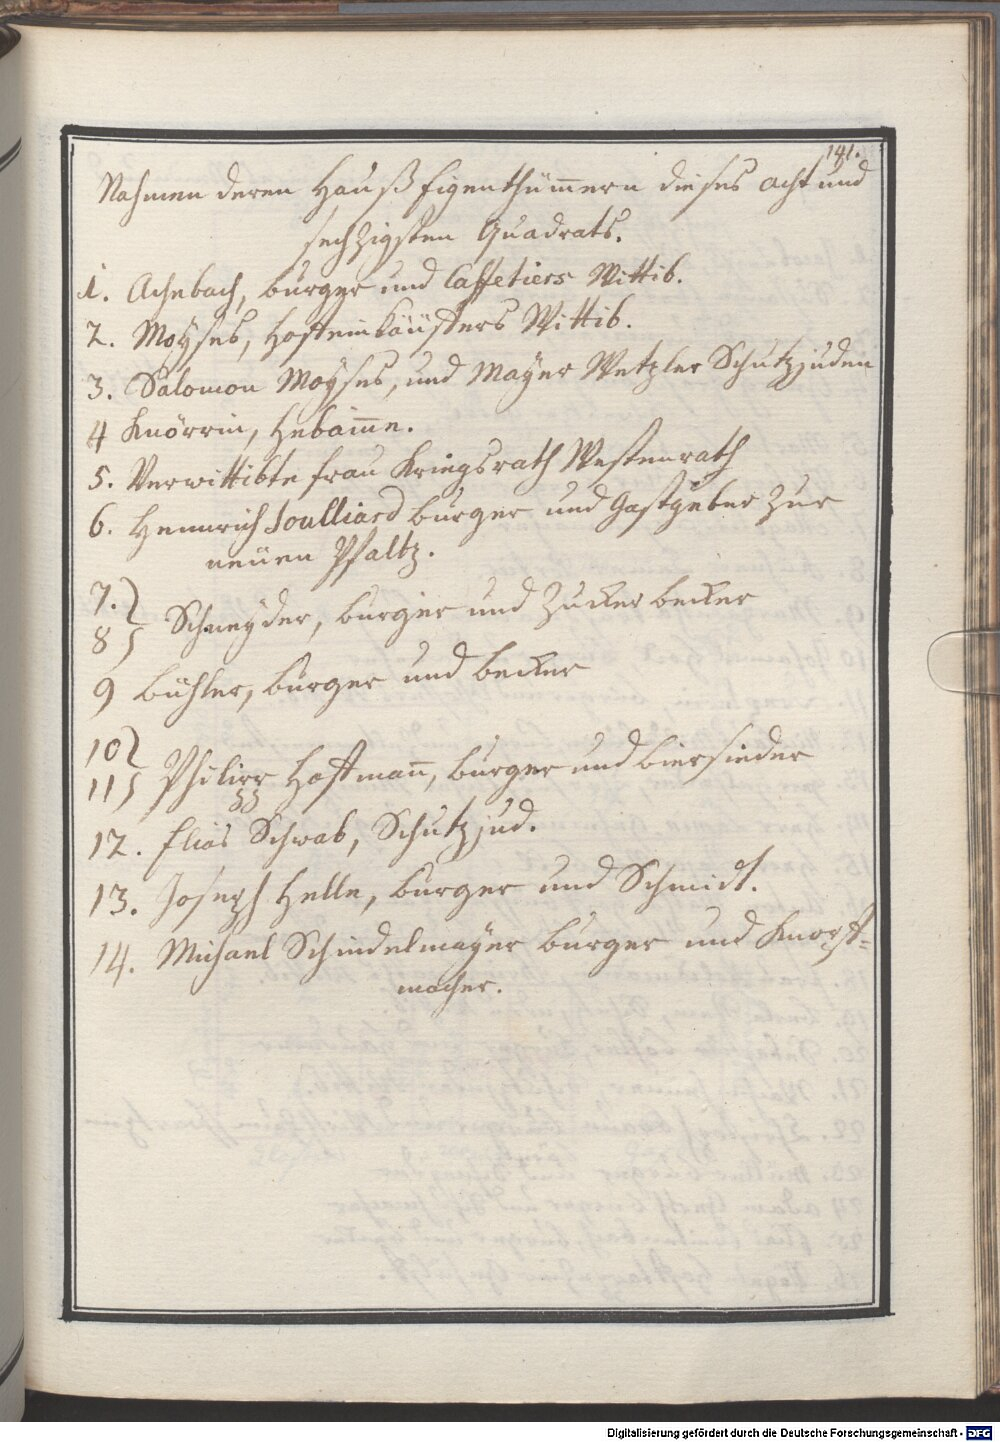 141.
Nahmen deren Hauß Eigenthümmern dieses acht und
sechzigsten Quadrats.
1. Achebach, burger und Caffetiers Wittib.
2. Moyses, Hoffeinkäuffers Wittib.
3. Salomon Moyses, und Mayer Wetzler Schutzjuden
4 Knörrin, Hebam̅e.
5. Verwittibte Frau Kriegsrath Westenrath
6. Hennrich Soulliard burger und Gastgeber zur
neuen Pfaltz.
7.
8 Schneyder, burger und Zucker becker
9 Bühler, burger und becker
10
11 Philipp Hoffman̅, burger und biersieder
12. Elias Schwab, Schutzjud.
13. Joseph Helle, burger und Schmidt.
14. Michael Schindelmayer burger und Knopf=
macher.
Digitalisierung gefördert durch die Deutsche Forschungsgemeinschaft - DFG